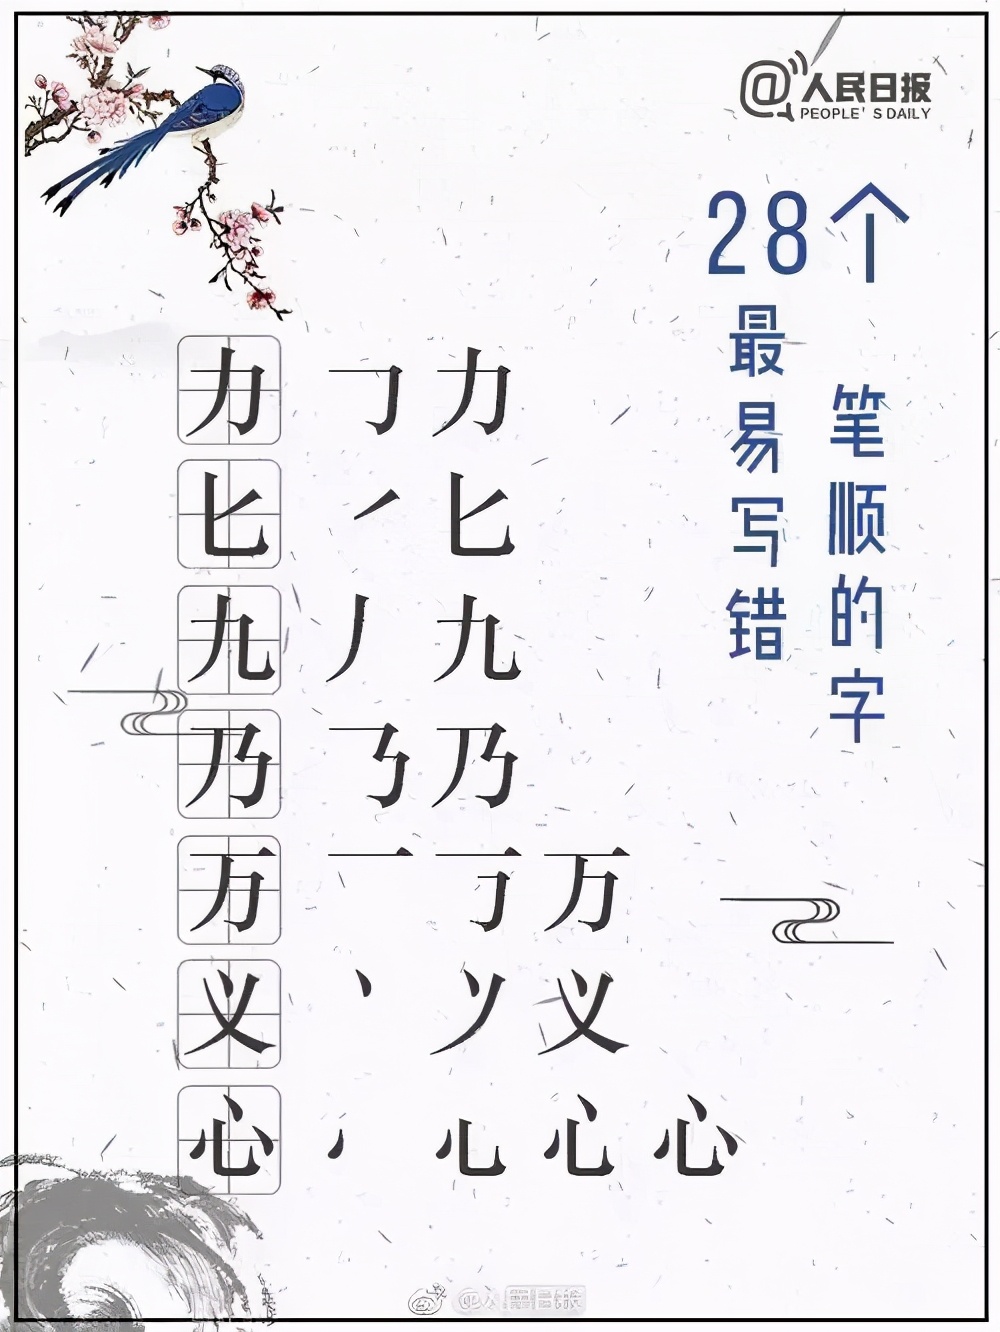 @人民日报
PEOPLE'S DAILY
28个
最易写错
笔顺的字
力 ㇆ 力
匕 ㇒ 匕
九 丿 九
乃 ㇡ 乃
万 一 万
义 丶 义
心 心